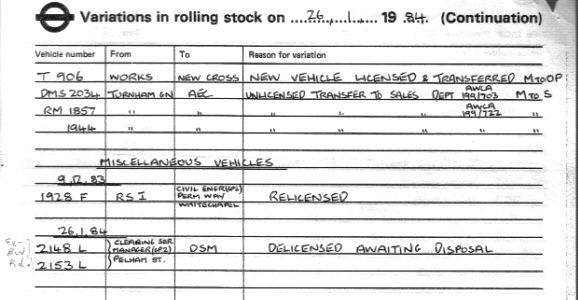 Variations in rolling stock on ....26....1.... 19 84. (Continuation)
Vehicle number From To Reason for variation
T 906 WORKS NEW CROSS NEW VEHICLE LICENSED & TRANSFERRED M TO OP
DMS 2034 TURNHAM GN AEC UNLICENSED TRANSFER TO SALES DEPT AWCA 199/703 M TO S
RM 1857 " " " " " AWCA 199/722 "
1944 " " " " " "
MISCELLANEOUS VEHICLES
9.12.83
1928 F RS I CIVIL ENGR(WPZ) PERM WAY WHITECHAPEL RELICENSED
26.1.84
2148 L CLEARING SER MANAGER(WPZ) DSM DELICENSED AWAITING DISPOSAL
2153 L PELHAM ST.